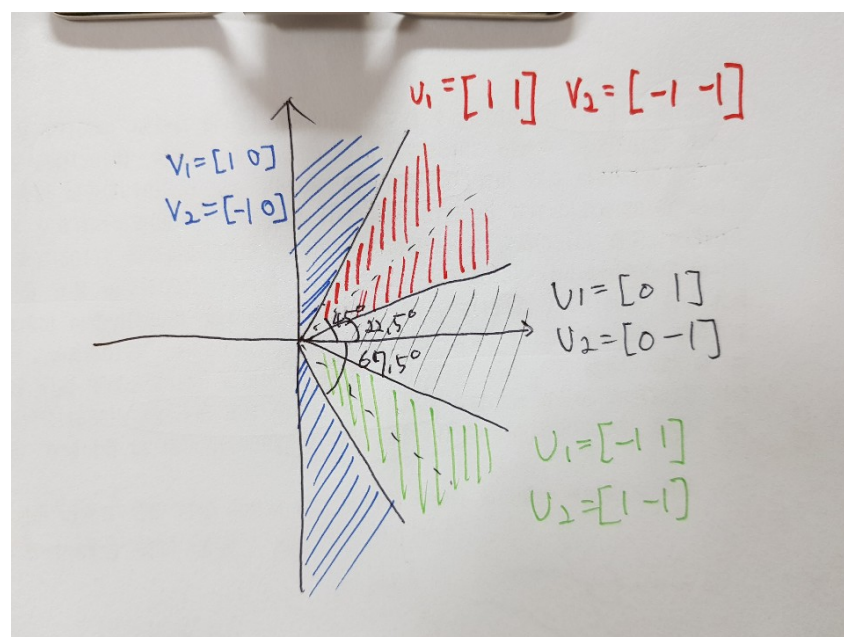 U1=[1 1] V2=[-1 -1]
V1=[1 0]
V2=[-1 0]
45°
22,5°
67,5°
U1=[0 1]
U2=[0 -1]
U1=[-1 1]
U2=[1 -1]